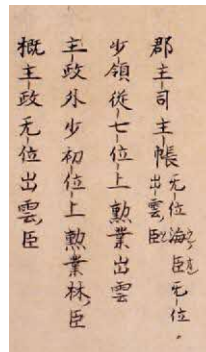 郡主-司主-帳无-位海臣无-位
出-雲臣
少-領従-七-位-上勲業出雲
主-政外少初位-上勲業林臣
概主-政无位出雲臣